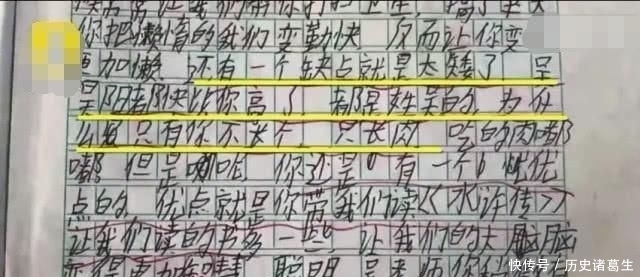 你把懒惰的我们变勤快 反而让你变
更加懒. 还有一个缺点就是太矮了 呈
昊阳都快比你高了, 都是姓吴的, 为什
么 只有你不长个, 只长肉, 吃的肉嘟
嘟 但是呢 你还是 有一个 优
点的, 优点就是你带我们读《水许传》
让我们读的书多一些 让我们的大脑
变得更加 聪明
快传号/历史诸葛生